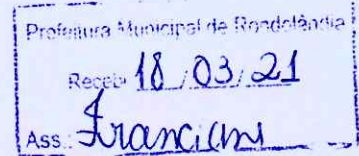 Prefeitura Municipal de Rondolândia
Receb 18/03/21
Ass.: Franciani